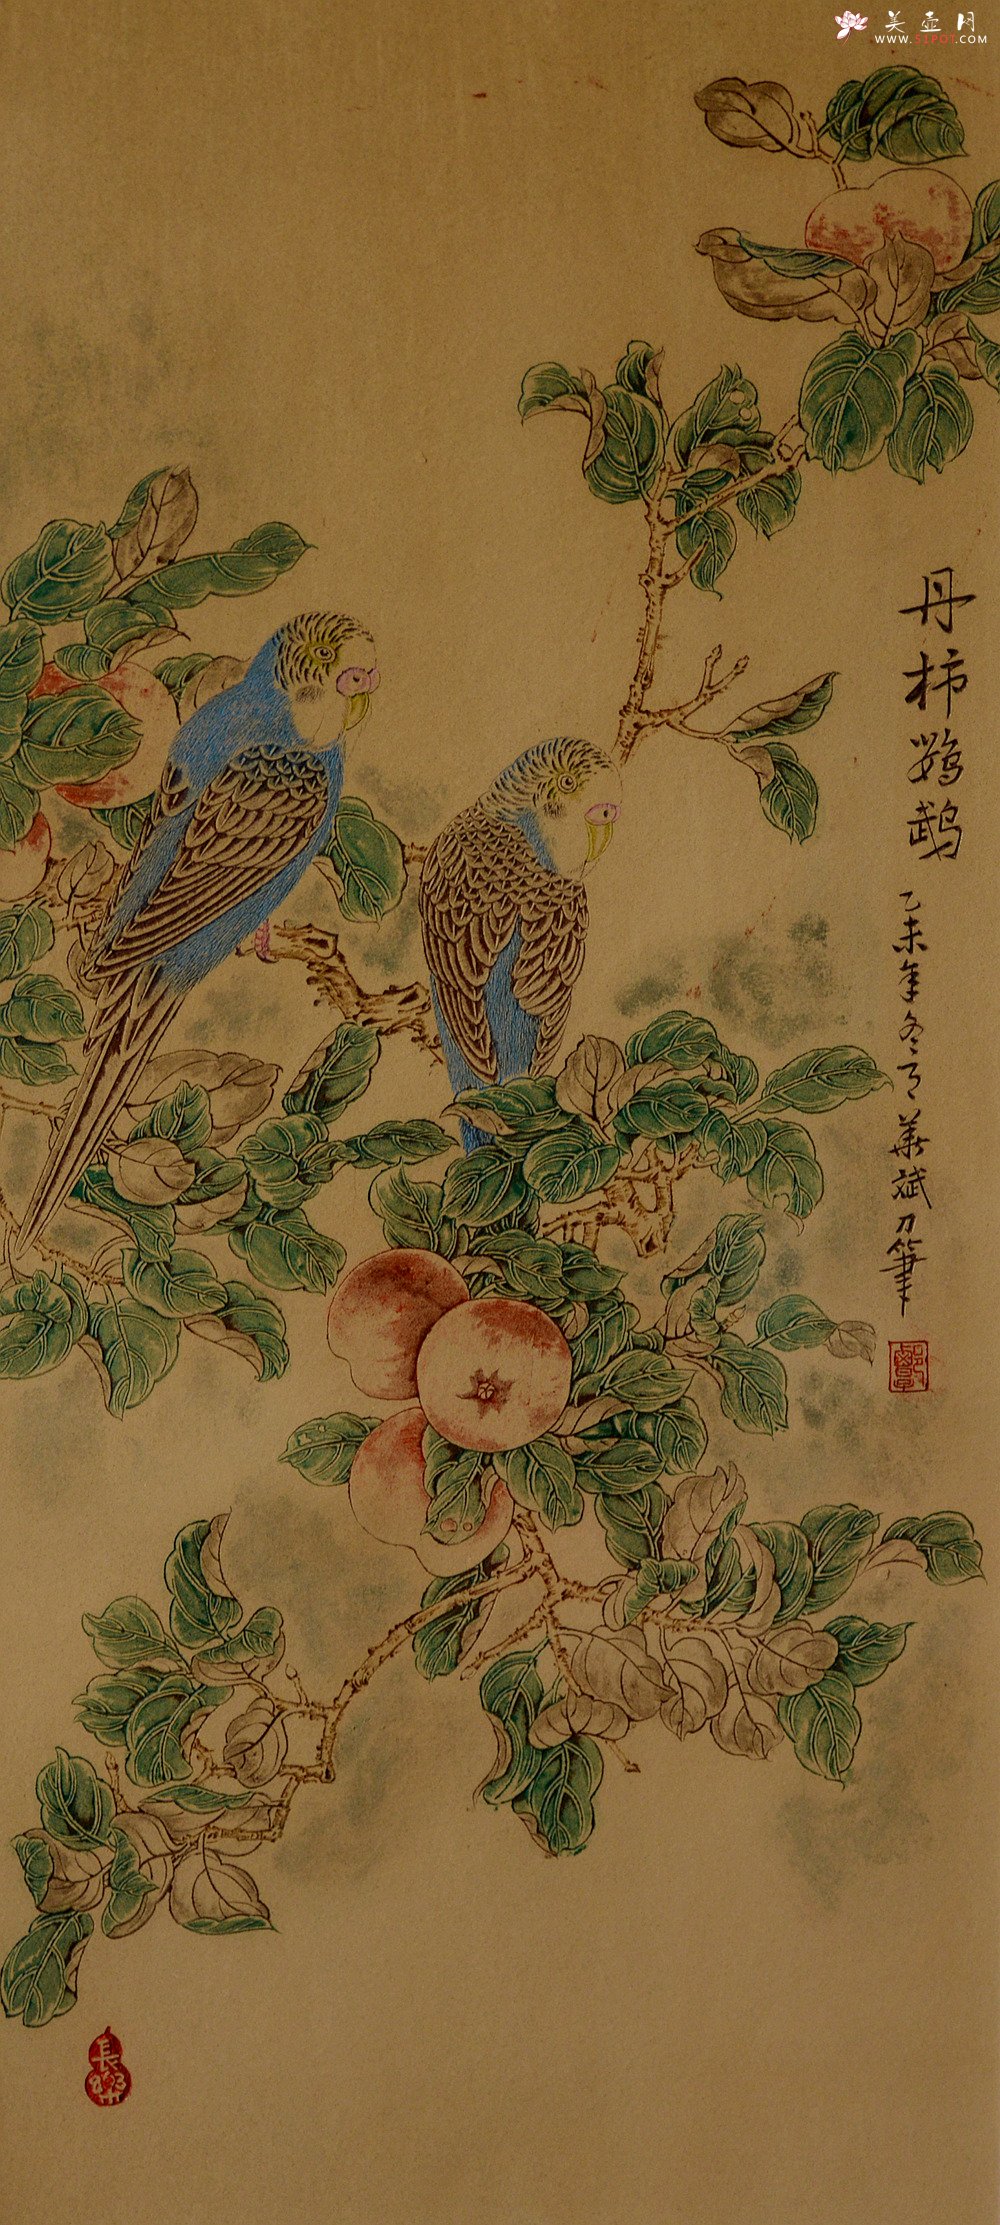 美壶网
WWW.51POT.COM
丹柿鹦鹉
乙未年冬月華斌刀筆
長樂